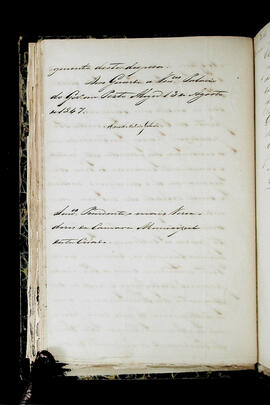 gamento desta despesa.
Deos Guarde a Vm.ces Palacio
do Governo em Porto Alegre 13 de Agosto
de 1847.
Snr.es Presidente e mais Verea-
dores da Camara Municipal
desta Cidade.